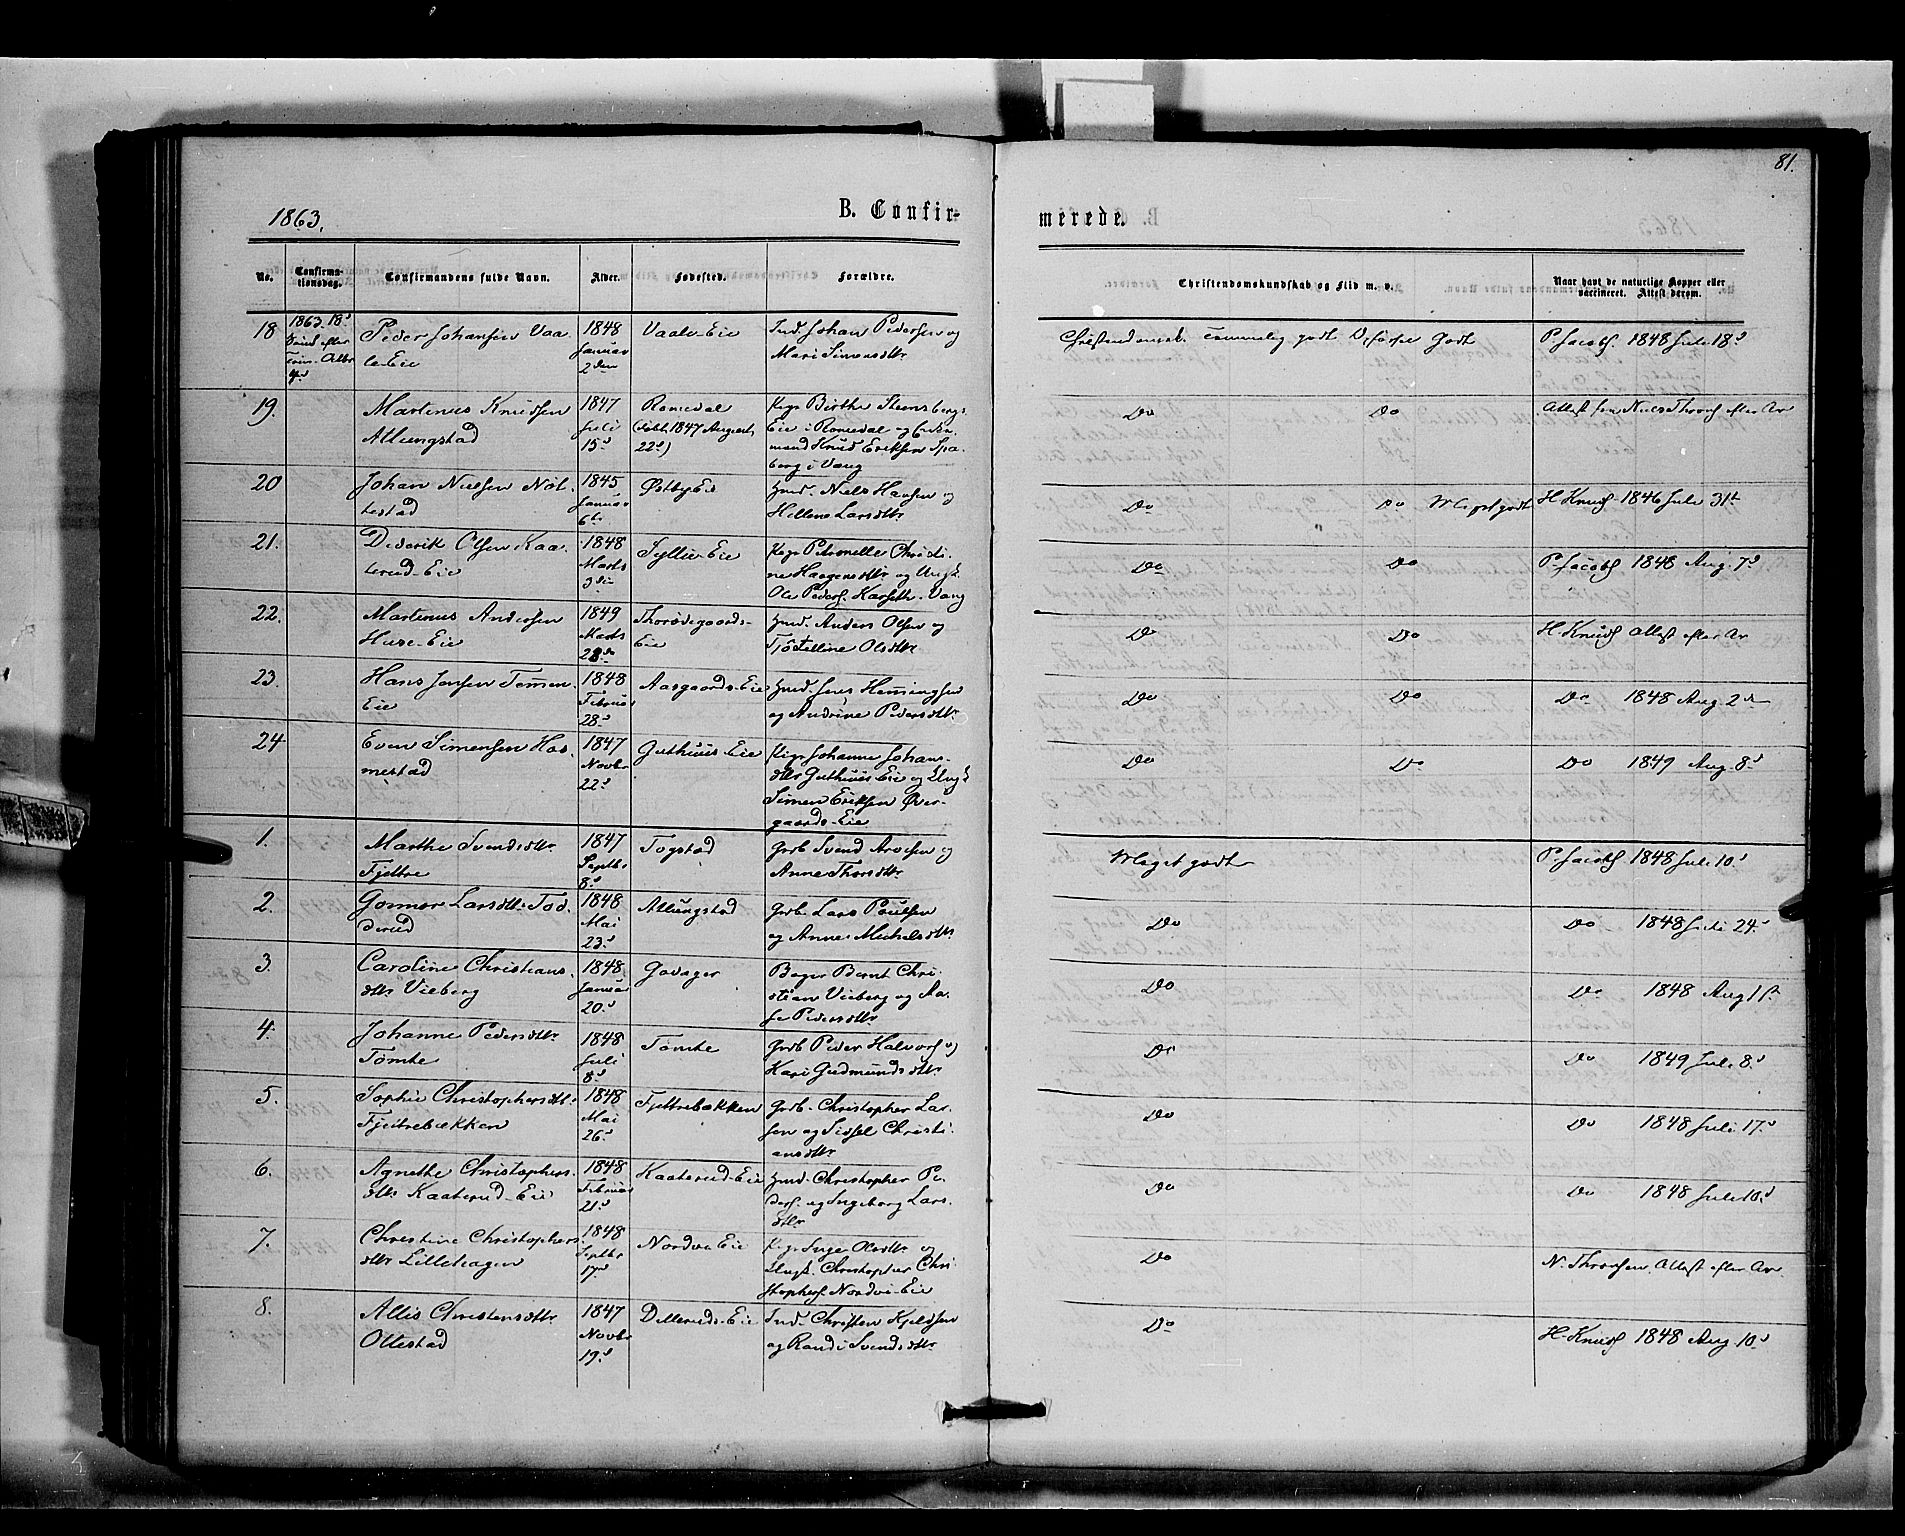 81.
1863.
B. Confir-
merede.
No.
Confirma-
tionsdag.
Confirmandens fulde Navn.
Alder.
Fødested.
Forældre.
Christendomskundskab og Flid m. v.
Naar havt de naturlige Kopper eller
vaccineret. Attest derom.
18
1863. 18d
Peder Johansen Vaa-
le-Eie
1848
Januar
2den
Vaale-Eie
Ind. Johan Pedersen og
Mari Simensdttr
Christendomsk. temmelig godt Opførsel Godt
P. Jacobs. 1848 Juli 18d
19.
Martinus Knudsen
Atlungstad
1847
Juli
15d
Romedal
(døbt 1847 August
22d)
Pige Birthe Steensberg-
Eie i Romedal og Enke-
mand Knud Eriksen Spa-
berg i Vang
Do
Do
Attest fra Niels Thorsf efter Ar
20
Johan Nielsen Not-
testad
1845
Januar
6te
Østby Eie
Hmd. Niels Hansen og
Hellene Larsdttr
Do
Do
Meget godt
H. Knuds 1846 Juli 31te
21.
Diderik Olsen Kaa-
terud-Eie
1848
Marts
3die
Syllie-Eie
Pige Petronelle Christi-
ne Haagensdttr og Ungk.
Ole Peders. Karseth-Vang
Do
Do
P. Jacobs 1848 Aug. 7d
22.
Martinus Andersen
Huse-Eie
1849
Marts
28de
Thorødegaards-
Eie
Hmd. Anders Olsen og
Olsdttr
Do
Do
H. Knuds Attest efter Ar
23
Hans Jensen Tommen-
Eie
1848
Februar
28d
Aasgaards-Eie
Hmd. Jens Hemingsen
og Andrine Pedersdttr
Do
Do
Do 1848 Aug. 2de
24
Even Simensen Hor-
mestad
1847
Novbr
22d
Guthuus-Eie
Pige Johanne Johans-
dttr Guthuus Eie og Ungk
Simen Eriksen Øver-
gaards-Eie
Do
Do
Do 1849 Aug. 8d
1.
Marthe Svendsdttr
Fjettre
1847
Septbr
8d
Togstad
Grdb Svend Arvesen og
Anne Thorsdttr
Meget godt
P. Jacobs 1848 Juli 10d
2.
Gonnor Larsdttr Tod-
derud
1848
Mai
23d
Atlungstad
Grdb. Lars Poulsen
og Anne Michelsdttr
Do
Do 1848 Juli 24d
3
Caroline Christians-
dttr Vieberg
1848
Januar
20d
Gavager
Bager Bernt Chri-
stian Vieberg og Aa-
se Pedersdttr
Do
Do 1848 Aug 1st
4.
Johanne Pedersdttr
Tomte
1848
Juli
8d
Tomte
Grdb Peder Halvors og
Kari Gudmundsdttr
Do
Do 1849 Juli 8d
5.
Sophie Christophersdttr
Fjettrebækken
1848
Mai
26d
Fjettrebækken
Grdb. Christopher Lar-
sen og Sidsel Christi-
ansdttr
Do
Do 1848 Juli 17d
6.
Agnethe Christophers-
dttr Kaaterud-Eie
1848
Februar
21d
Kaaterud-Eie
Hmd. Christopher Pe-
ders. og Ingeborg Lars-
dttr
Do
Do 1848 Juli 10d
7.
Christine Christophers-
dttr Lillehagen
1848
Septbr
17d
Nordvi Eie
Pige Inger Olsdttr og
Ungk. Christopher Chri-
stophers. Nordvi-Eie
Do
N. Thorsen. Attest efter Ar
8.
Allis Christensdttr
Ottestad
1847
Novbr
19d
Dellerud-Eie
Ind. Christen Kjeldsen
og Randi Svendsdttr
Do
H. Knuds 1848 Aug. 10d